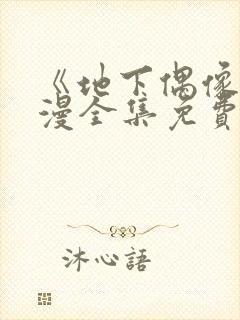 《地下偶像
漫全集免費
沐心語